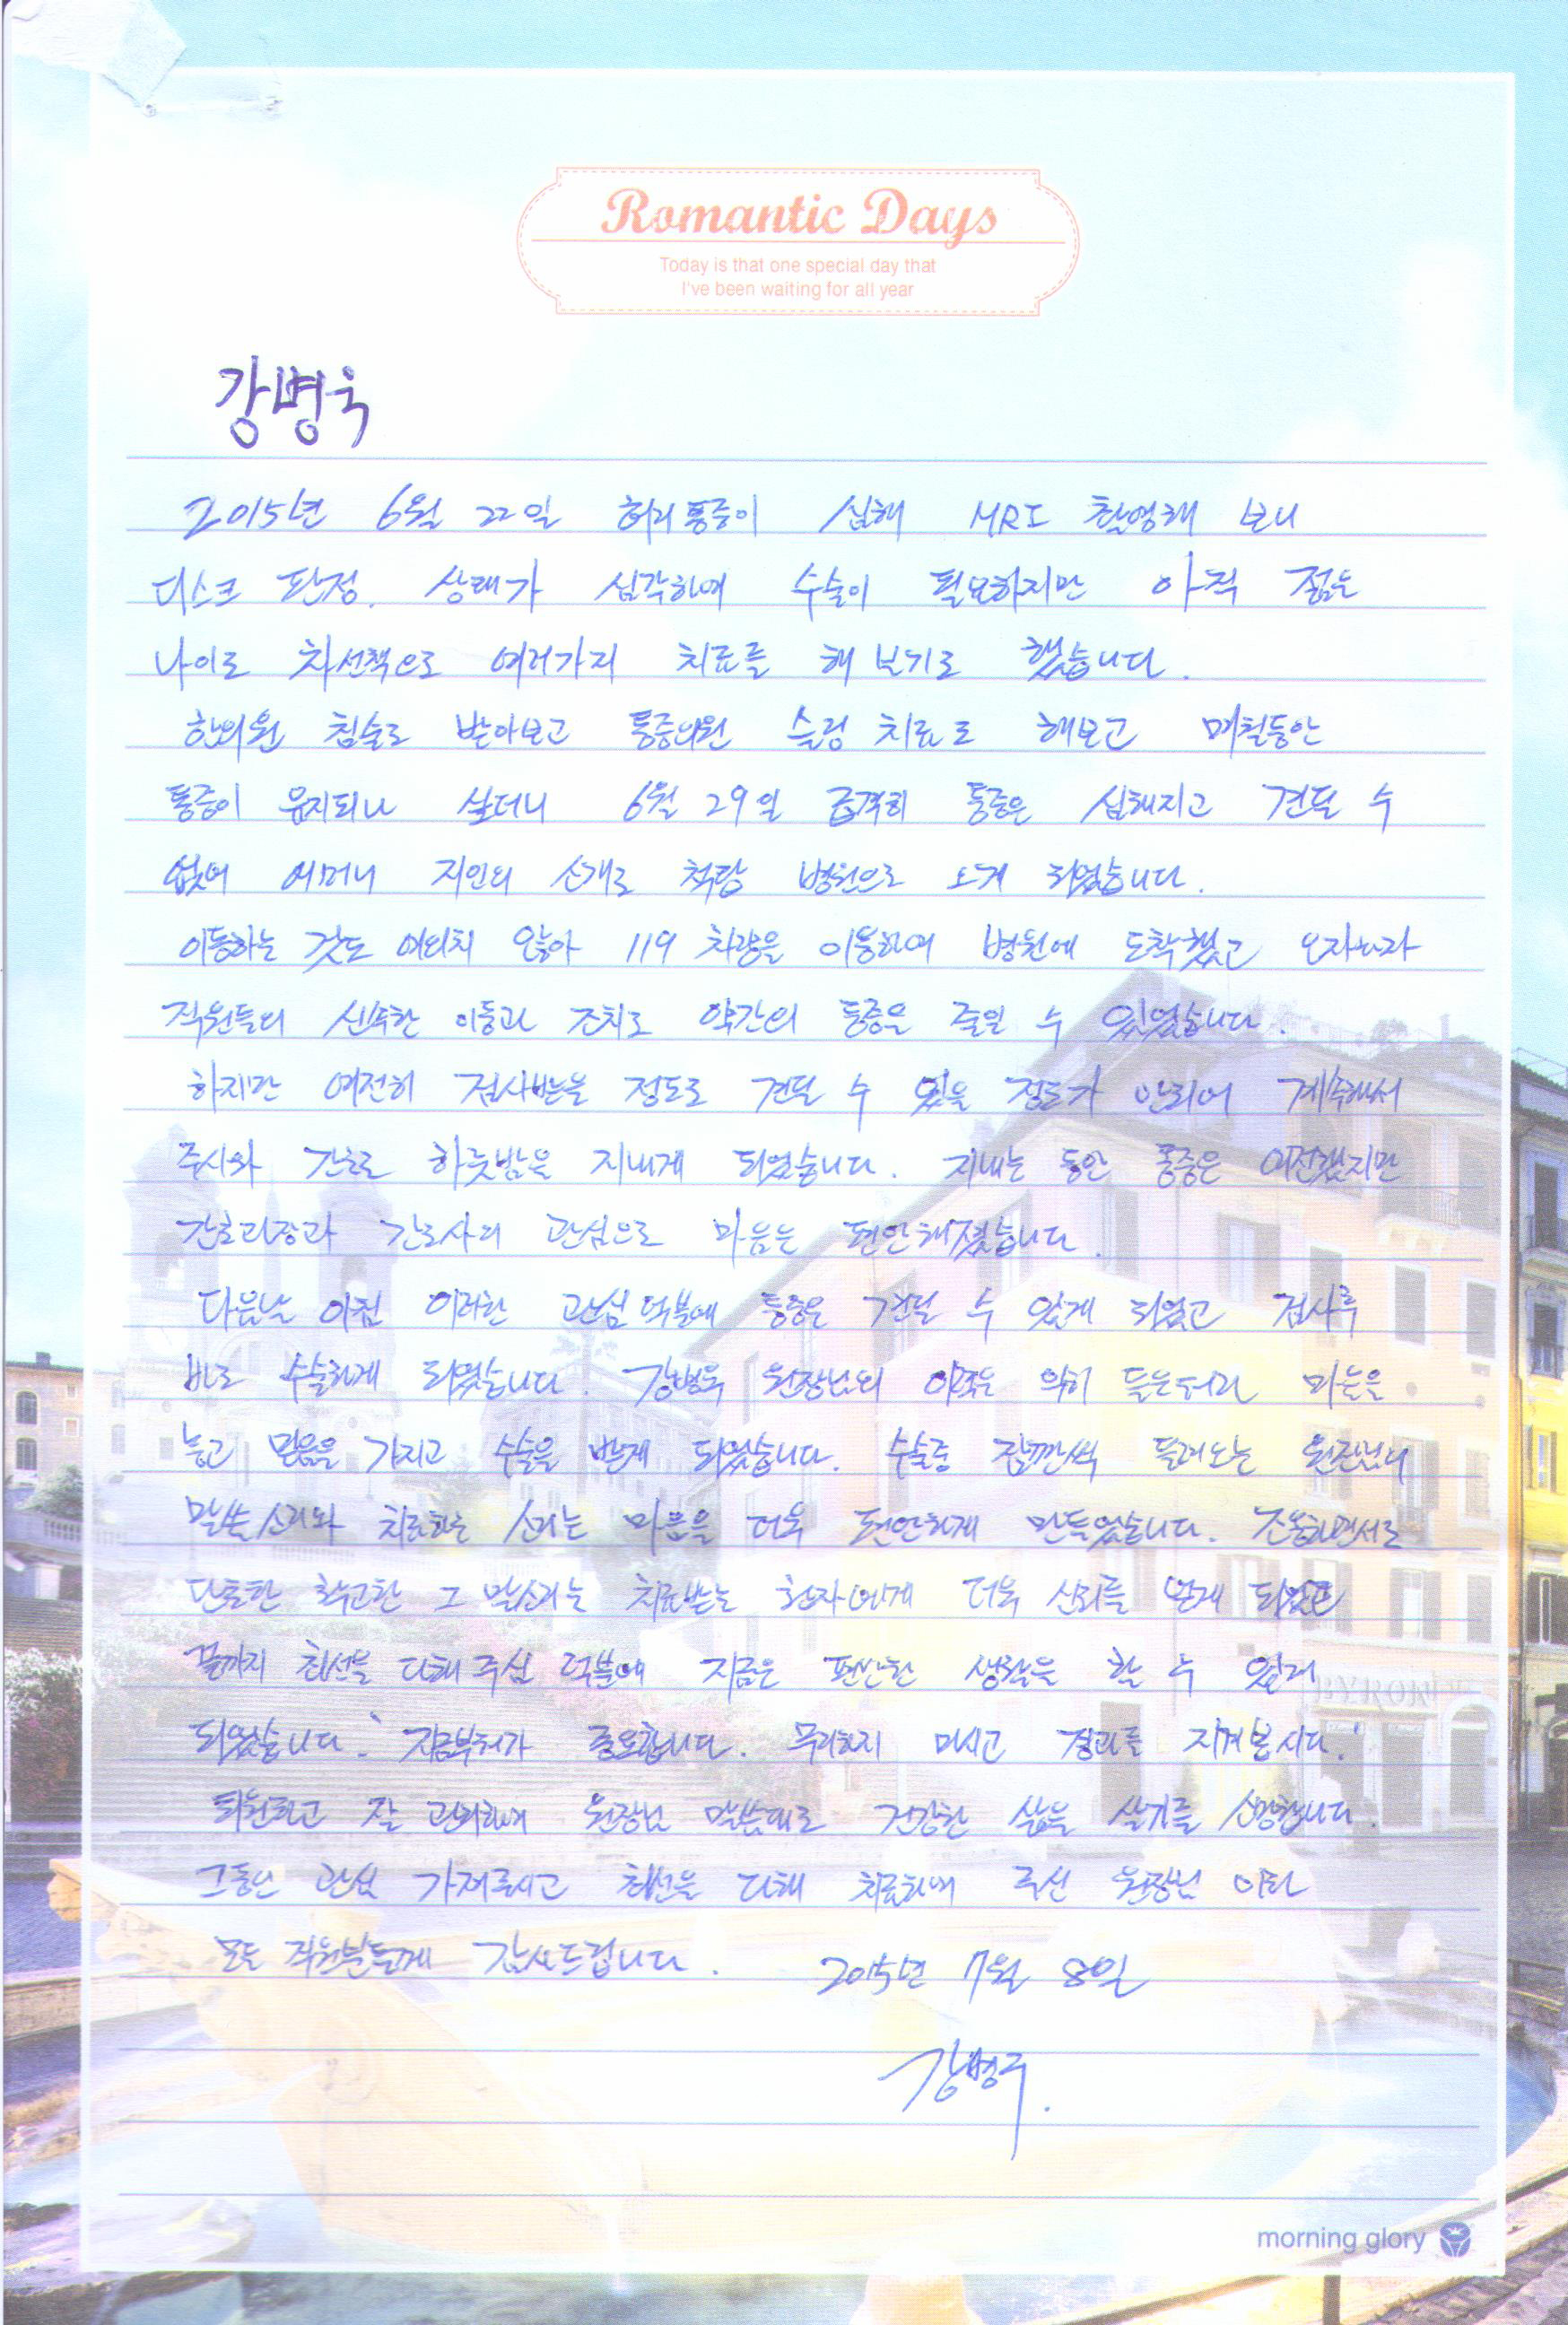 Romantic Days
Today is that one special day that
I've been waiting for all year
강병욱
2015년 6월 22일 허리통증이 심해 MRI 촬영해 보니
디스크 판정. 상태가 심각하여 수술이 필요하지만 아직 젊은
나이로 차선책으로 여러가지 치료를 해 보기로 했습니다.
한의원 침술로 받아보고 통증의원 슬링 치료도 해보고 며칠동안
통증이 유지되나 싶더니 6월 29일 급격히 통증은 심해지고 견딜 수
없어 어머니 지인의 소개로 척탑 병원으로 오게 되었습니다.
이동하는 것도 여의치 않아 119 차량을 이용하여 병원에 도착했고 오자마자
직원들의 신속한 이동과 조치로 약간의 통증은 줄일 수 있었습니다.
하지만 여전히 검사받을 정도로 견딜 수 있을 정도가 안되어 계속해서
주사와 간호로 하룻밤을 지내게 되었습니다. 지내는 동안 통증은 여전했지만
간호과장과 간호사의 관심으로 마음은 편안해졌습니다.
다음날 아침 이러한 관심 덕분에 통증은 견딜 수 있게 되었고 검사후
바로 수술하게 되었습니다. 강병욱 원장님의 익히 들은터라 마음을
놓고 믿음을 가지고 수술을 받게 되었습니다. 수술중 잠깐씩 들려오는 원장님의
말씀 소리와 치료하는 소리는 마음을 더욱 편안하게 만들었습니다. 조용하면서도
단호한 확고한 그 말소리는 치료받는 환자에게 더욱 신뢰를 얻게 되었고
끝까지 최선을 다해 주신 덕분에 지금은 편안한 생활을 할 수 있게
되었습니다. "지금부터가 중요합니다. 무리하지 마시고 경과를 지켜봅시다."
퇴원하고 잘 관리하여 원장님 말씀대로 건강한 삶을 살기를 소망합니다.
그동안 관심 가져주시고 최선을 다해 치료하여 주신 원장님 이하
모든 직원분들께 감사드립니다. 2015년 7월 8일
강병주.
morning glory